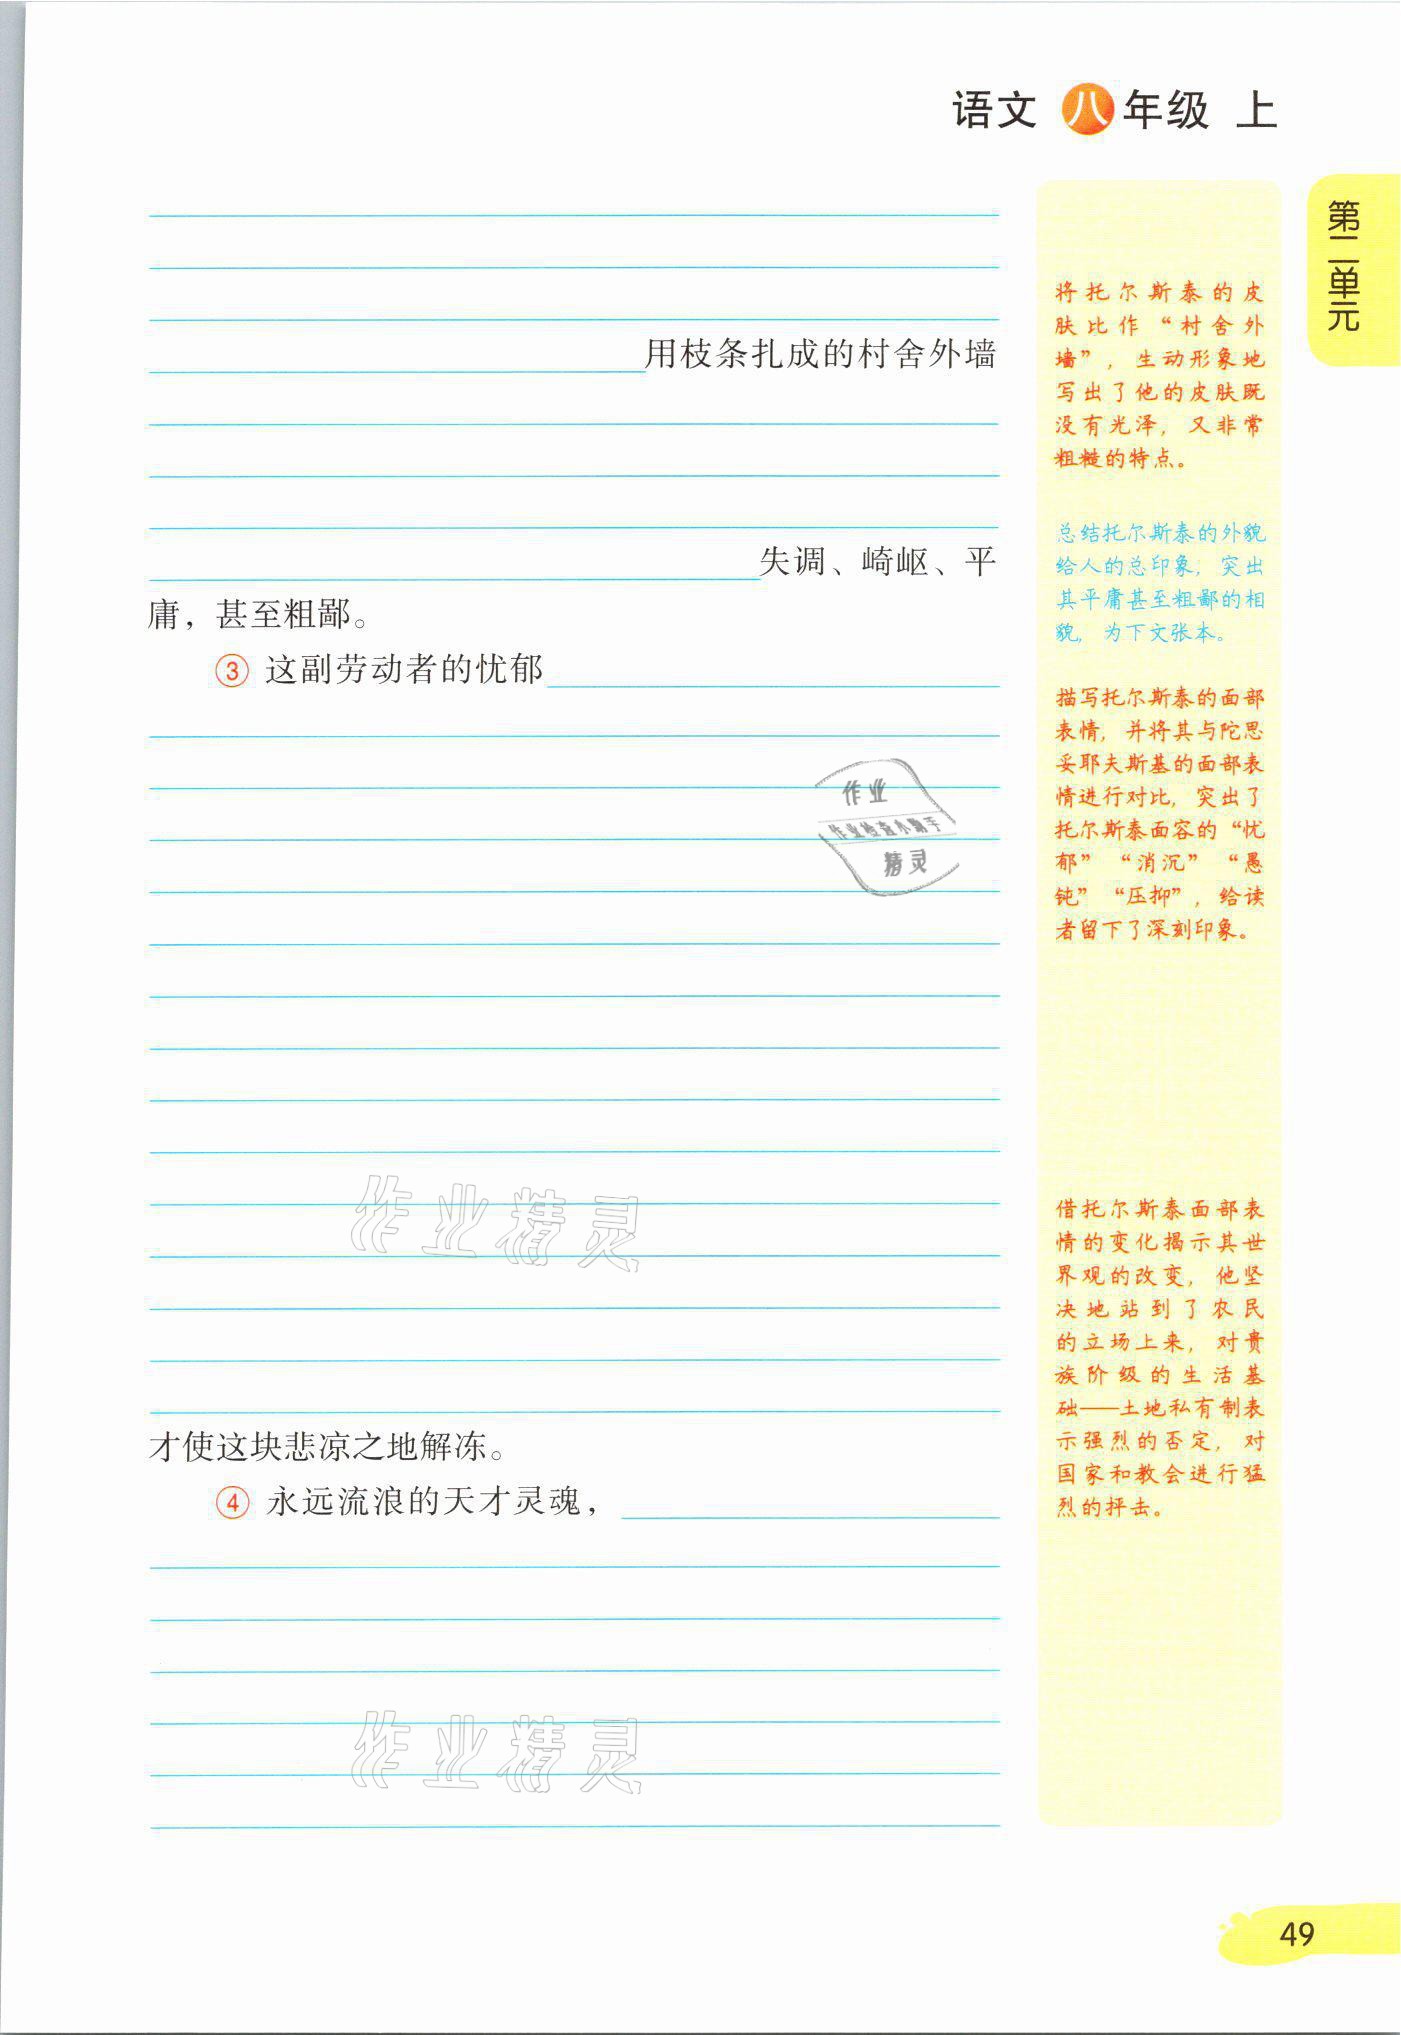 语文 八年级 上
第二单元
用枝条扎成的村舍外墙
失调、崎岖、平
庸，甚至粗鄙。
③ 这副劳动者的忧郁
才使这块悲凉之地解冻。
④ 永远流浪的天才灵魂，
将托尔斯泰的皮
肤比作“村舍外
墙”，生动形象地
写出了他的皮肤既
没有光泽，又非常
粗糙的特点。
总结托尔斯泰的外貌
给人的总印象；突出
其平庸甚至粗鄙的相
貌，为下文张本。
描写托尔斯泰的面部
表情，并将其与陀思
妥耶夫斯基的面部表
情进行对比，突出了
托尔斯泰面容的“忧
郁”“消沉”“愚
钝”“压抑”，给读
者留下了深刻印象。
借托尔斯泰面部表
情的变化揭示其世
界观的改变，他坚
决地站到了农民
的立场上来，对贵
族阶级的生活基
础——土地私有制表
示强烈的否定，对
国家和教会进行猛
烈的抨击。
作业
作业检查小助手
精灵
作业精灵
作业精灵
49